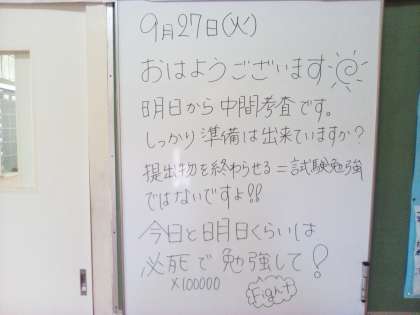 9月27日(火)
おはようございます
明日から中間考査です。
しっかり準備は出来ていますか?
提出物を終わらせる=試験勉強
ではないですよ!!
今日と明日くらいは
必死で勉強して!
×100000
Fight